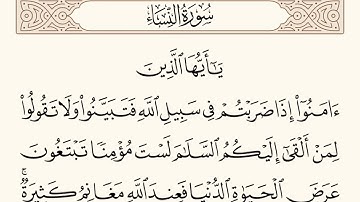 سُورَةُ النِّسَاءِ
يَٰٓأَيُّهَا ٱلَّذِينَ
ءَامَنُوٓاْ إِذَا ضَرَبۡتُمۡ فِي سَبِيلِ ٱللَّهِ فَتَبَيَّنُواْ وَلَا تَقُولُواْ
لِمَنۡ أَلۡقَىٰٓ إِلَيۡكُمُ ٱلسَّلَٰمَ لَسۡتَ مُؤۡمِنٗا تَبۡتَغُونَ
عَرَضَ ٱلۡحَيَوٰةِ ٱلدُّنۡيَا فَعِندَ ٱللَّهِ مَغَانِمُ كَثِيرَةٞۚ